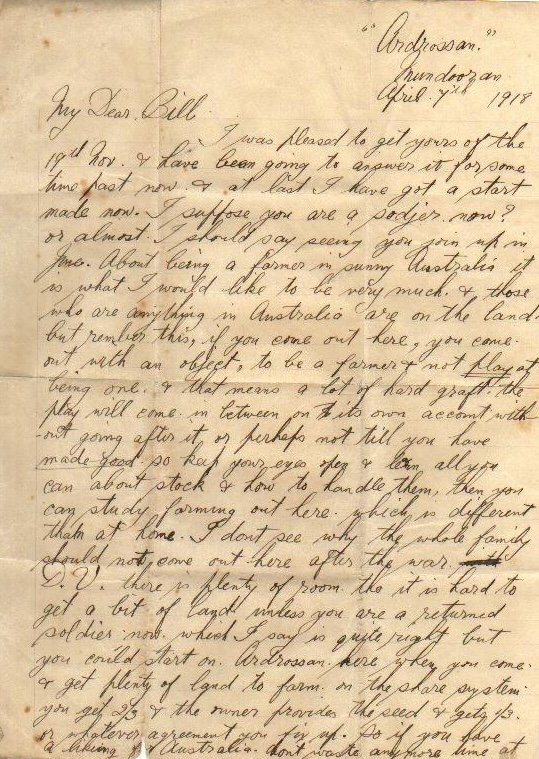 "Ardrossan."
Mundooran
April. 7th 1918
My Dear Bill.
I was pleased to get yours of the
19th Nov. & have been going to answer it for some
time past now & at last I have got a start
made now. I suppose you are a sodjer now?
or almost I should say seeing you join up in
June. About being a farmer in sunny Australia it
is what I would like to be very much. & those
who are anything in Australia are on the land
but rember this, if you come out here, you come
out with an object, to be a farmer & not play at
being one. & that means a lot of hard graft. the
play will come in between on its own account with
-out going after it or perhaps not till you have
made good so keep your eyes open & learn all you
can about stock & how to handle them, then you
can study farming out here. which is different
than at home. I dont see why the whole family
should not come out here after the war.
D.V. there is plenty of room tho it is hard to
get a bit of land unless you are a returned
soldier now. which I say is quite right but
you could start on Ardrossan here when you come.
& get plenty of land to farm on the share system
you get 2/3 & the owner provides the seed & gets 1/3.
or whatever agreement you fix up. So if you have
a liking for Australia. dont waste anymore time at